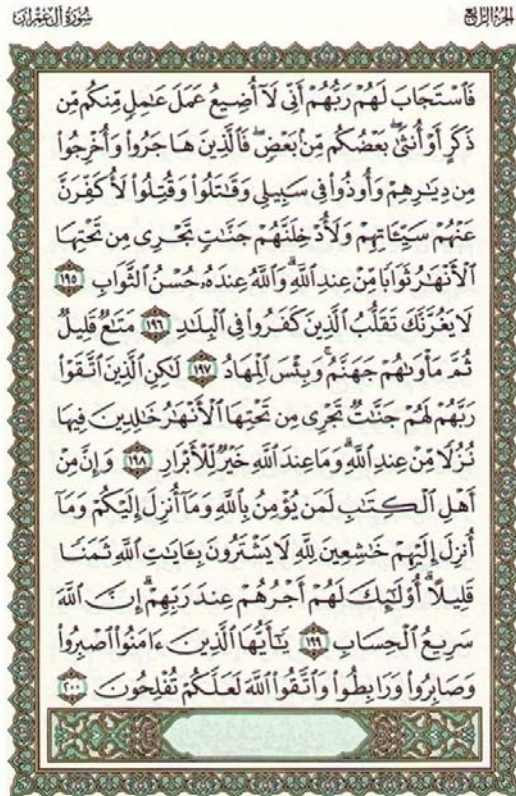 الجزء الرابع
سورة آل عمران
فَٱسْتَجَابَ لَهُمْ رَبُّهُمْ أَنِّى لَآ أُضِيعُ عَمَلَ عَٰمِلٍ مِّنكُم مِّن
ذَكَرٍ أَوْ أُنثَىٰۖ بَعْضُكُم مِّنۢ بَعْضٍۖ فَٱلَّذِينَ هَاجَرُوا۟ وَأُخْرِجُوا۟
مِن دِيَٰرِهِمْ وَأُوذُوا۟ فِى سَبِيلِى وَقَٰتَلُوا۟ وَقُتِلُوا۟ لَأُكَفِّرَنَّ
عَنْهُمْ سَيِّـَٔاتِهِمْ وَلَأُدْخِلَنَّهُمْ جَنَّٰتٍ تَجْرِى مِن تَحْتِهَا
ٱلْأَنْهَٰرُ ثَوَابًا مِّنْ عِندِ ٱللَّهِۗ وَٱللَّهُ عِندَهُۥ حُسْنُ ٱلثَّوَابِ ١٩٥
لَا يَغُرَّنَّكَ تَقَلُّبُ ٱلَّذِينَ كَفَرُوا۟ فِى ٱلْبِلَٰدِ ١٩٦ مَتَٰعٌ قَلِيلٌ
ثُمَّ مَأْوَىٰهُمْ جَهَنَّمُۚ وَبِئْسَ ٱلْمِهَادُ ١٩٧ لَٰكِنِ ٱلَّذِينَ ٱتَّقَوْا۟
رَبَّهُمْ لَهُمْ جَنَّٰتٌ تَجْرِى مِن تَحْتِهَا ٱلْأَنْهَٰرُ خَٰلِدِينَ فِيهَا
نُزُلًا مِّنْ عِندِ ٱللَّهِۗ وَمَا عِندَ ٱللَّهِ خَيْرٌ لِّلْأَبْرَارِ ١٩٨ وَإِنَّ مِنْ
أَهْلِ ٱلْكِتَٰبِ لَمَن يُؤْمِنُ بِٱللَّهِ وَمَآ أُنزِلَ إِلَيْكُمْ وَمَآ
أُنزِلَ إِلَيْهِمْ خَٰشِعِينَ لِلَّهِ لَا يَشْتَرُونَ بِـَٔايَٰتِ ٱللَّهِ ثَمَنًا
قَلِيلًاۗ أُو۟لَٰٓئِكَ لَهُمْ أَجْرُهُمْ عِندَ رَبِّهِمْۗ إِنَّ ٱللَّهَ
سَرِيعُ ٱلْحِسَابِ ١٩٩ يَٰٓأَيُّهَا ٱلَّذِينَ ءَامَنُوا۟ ٱصْبِرُوا۟
وَصَابِرُوا۟ وَرَابِطُوا۟ وَٱتَّقُوا۟ ٱللَّهَ لَعَلَّكُمْ تُفْلِحُونَ ٢٠٠